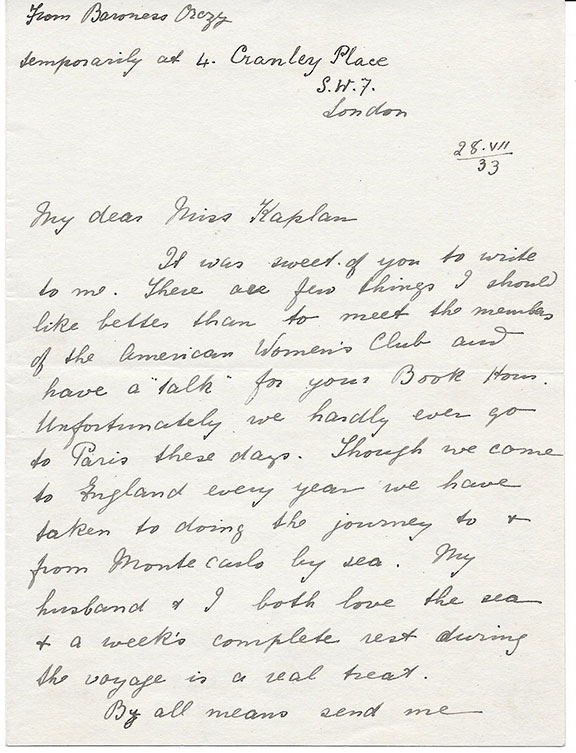 From Baroness Orczy
temporarily at 4. Cranley Place
S.W.7.
London
28.VII
33
My dear Miss Kaplan
It was sweet of you to write
to me. There are few things I should
like better than to meet the members
of the American Women's Club and
have a "talk" for your Book Hour.
Unfortunately we hardly ever go
to Paris these days. Though we come
to England every year we have
taken to doing the journey to &
from Monte Carlo by sea. My
husband & I both love the sea
& a week's complete rest during
the voyage is a real treat.
By all means send me